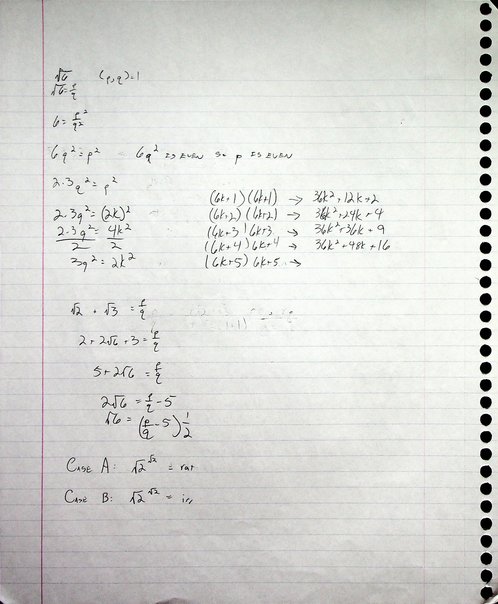 √6 (p,q)=1
√6 = p/q
6 = p²/q²
6q² = p² 6q² IS EVEN SO p IS EVEN
2·3q² = p²
2·3q² = (2k)²
2·3q²/2 = 4k²/2
3q² = 2k²
(6k+1)(6k+1) → 36k²+12k+2
(6k+2)(6k+2) → 36k²+24k+4
(6k+3)(6k+3 → 36k²+36k+9
(6k+4)(6k+4 → 36k²+48k+16
(6k+5)(6k+5 →
√2 + √3 = p/q
2+2√6+3 = p/q
5+2√6 = p/q
2√6 = p/q - 5
√6 = (p/q - 5) 1/2
CASE A: √2^√2 = rat
CASE B: √2^√2 = irr